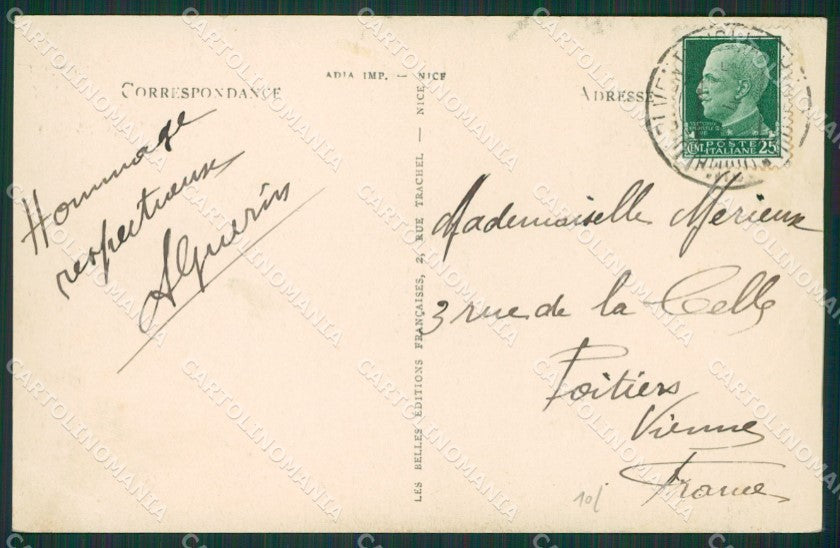 ADIA IMP. — NICE
CORRESPONDANCE
ADRESSE
POSTE
ITALIANE
CENT. 25
Hommage
respectueux
AGuerin
LES BELLES ÉDITIONS FRANÇAISES, 2, RUE TRACHEL — NICE
Mademoiselle Merieux
3 rue de la Celle
Poitiers
Vienne
France
10/
CARTOLINOMANIA